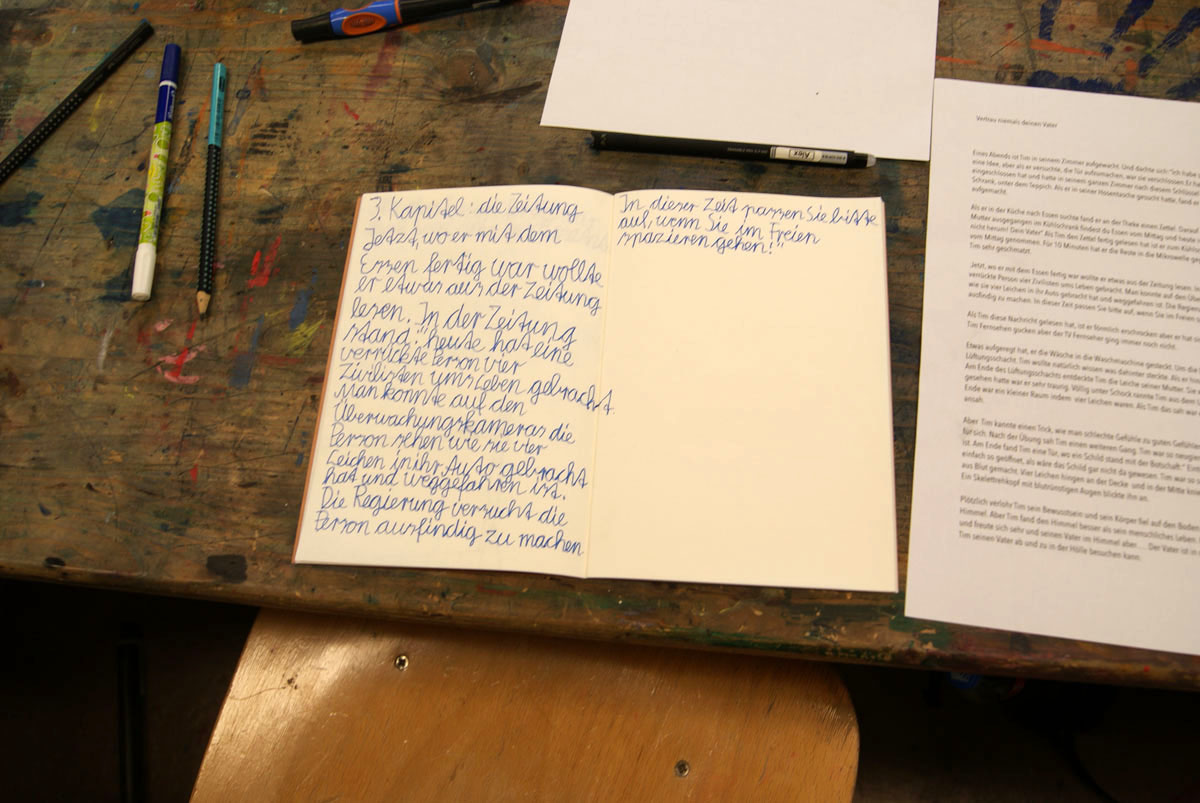 3. Kapitel: die Zeitung
Jetzt, wo er mit dem
Essen fertig war wollte
er etwas aus der Zeitung
lesen. In der Zeitung
stand: "heute hat eine
verrückte Person vier
Zivilisten ums Leben gebracht.
Man konnte auf den
Überwachungskameras die
Person sehen wie sie vier
Leichen in ihr Auto gebracht
hat und weggefahren ist.
Die Regierung versucht die
Person ausfindig zu machen
In dieser Zeit passen Sie bitte
auf, wenn Sie im Freien
spazieren gehen!"
Alex
Vertrau niemals deinen Vater
Eines Abends ist Tim in seinem Zimmer aufgewacht. Und dachte sich: "Ich habe
eine Idee, aber als er versuchte, die Tür aufzumachen, war sie verschlossen.
eingeschlossen hat und hatte in seinem ganzen Zimmer nach diesem
Schrank, unter dem Teppich. Als er in seiner Hosentasche gesucht hatte, fand
aufgemacht.
Als er in der Küche nach Essen suchte fand er an der Theke einen Zettel.
Mutter ausgegangen im Kühlschrank findest du Essen vom Mittag und
nicht herum! Dein Vater". Als Tim den Zettel fertig gelesen hat ist er zum
vom Mittag genommen. Für 10 Minuten hat er die Reste in die Mikrowelle
Tim sehr geschmatzt.
Jetzt, wo er mit dem Essen fertig war wollte er etwas aus der Zeitung lesen.
verrückte Person vier Zivilisten ums Leben gebracht. Man konnte auf den
wie sie vier Leichen in ihr Auto gebracht hat und weggefahren ist. Die
ausfindig zu machen. In dieser Zeit passen Sie bitte auf, wenn Sie im Freien
Als Tim diese Nachricht gelesen hat, ist er förmlich erschrocken aber er hat
Tim Fernsehen gucken aber der TV Fernseher ging immer noch nicht.
Etwas aufgeregt hat, er die Wäsche in die Waschmaschine gesteckt. Um die
Lüftungsschacht. Tim wollte natürlich wissen was dahinter steckte. Als er
Am Ende des Lüftungsschachts entdeckte Tim die Leiche seiner Mutter. Sie
gesehen hatte war er sehr traurig. Völlig unter Schock rannte Tim aus dem
Ende war ein kleiner Raum indem vier Leichen waren. Als Tim das sah war
ansah.
Aber Tim kannte einen Trick, wie man schlechte Gefühle zu guten Gefühlen
für sich. Nach der Übung sah Tim einen weiteren Gang. Tim war so
ist. Am Ende fand Tim eine Tür, wo ein Schild stand mit der Botschaft:
einfach so geöffnet, als wäre das Schild gar nicht da gewesen. Tim war so
aus Blut gemacht. Vier Leichen hingen an der Decke und in der Mitte
Ein Skelettrehkopf mit blutrünstigen Augen blickte ihn an.
Plötzlich verlohr Tim sein Bewusstsein und sein Körper fiel auf den
Himmel. Aber Tim fand den Himmel besser als sein menschliches Leben.
und freute sich sehr und seinen Vater im Himmel aber.... Der Vater ist
Tim seinen Vater ab und zu in der Hölle besuchen kann.